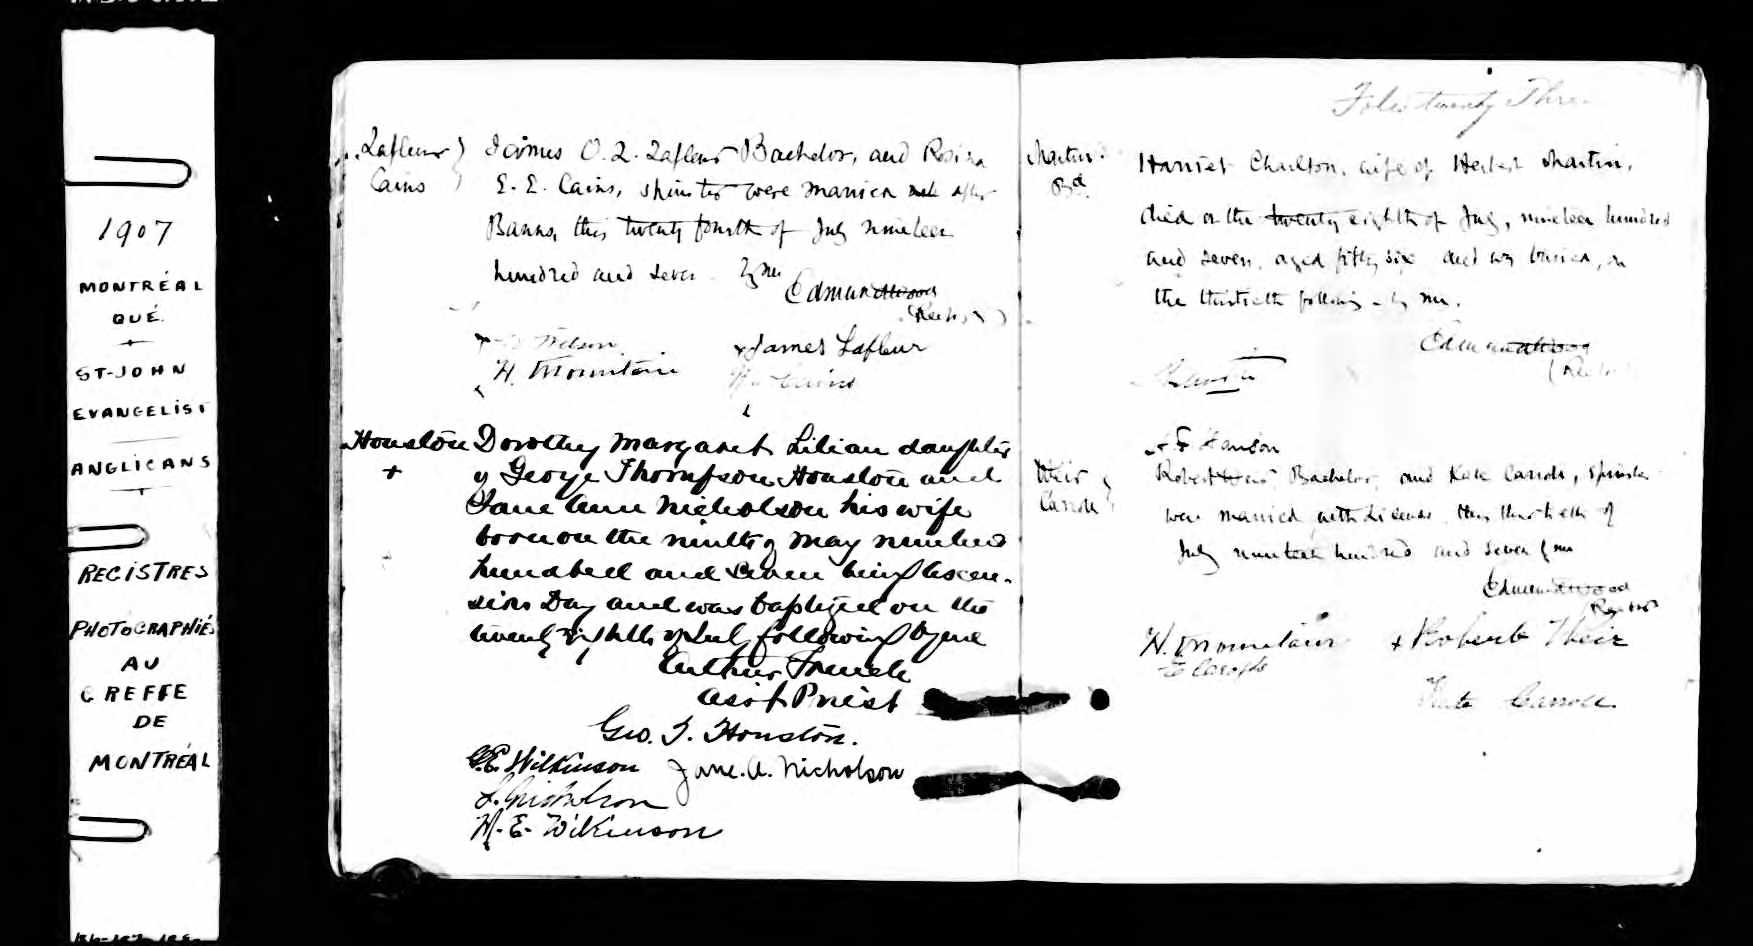 1907
MONTRÉAL
QUÉ.
ST-JOHN
EVANGELIST
ANGLICANS
REGISTRES
PHOTOGRAPHIÉS
AU
GREFFE
DE
MONTRÉAL
Lafleur
Cains
James O. L. Lafleur Bachelor, and Rosina
E. E. Cains, spinster were married after
Banns, this twenty fourth of July nineteen
hundred and seven by me
Edmund Wood
(Rector)
Wilson
James Lafleur
H. Mountain
Cains
Houston
+
Dorothy Margaret Lilian daughter
of George Thompson Houston and
Jane Ann Nicholson his wife
born on the ninth of May nineteen
hundred and seven being Ascen-
sion Day and was baptized on the
twenty eighth of July following by me
Arthur French
Asst Priest
Geo. T. Houston.
G.E. Wilkinson
Jane. A. Nicholson
L. Nicholson
H. E. Wilkinson
Folio twenty Three
Martin
Bd.
Harriet Charlton, wife of Herbert Martin,
died on the twenty eighth of July, nineteen hundred
and seven, aged fifty six and was buried, on
the thirtieth following by me.
Edmund Wood
(Rector)
F Hanson
Weir
Carroll
Robert Weir Bachelor, and Kate Carroll, spinster
were married, with License, this thirtieth of
July nineteen hundred and seven by me
Edmund Wood
Rector
H. Mountain
Robert Weir
Kate Carroll